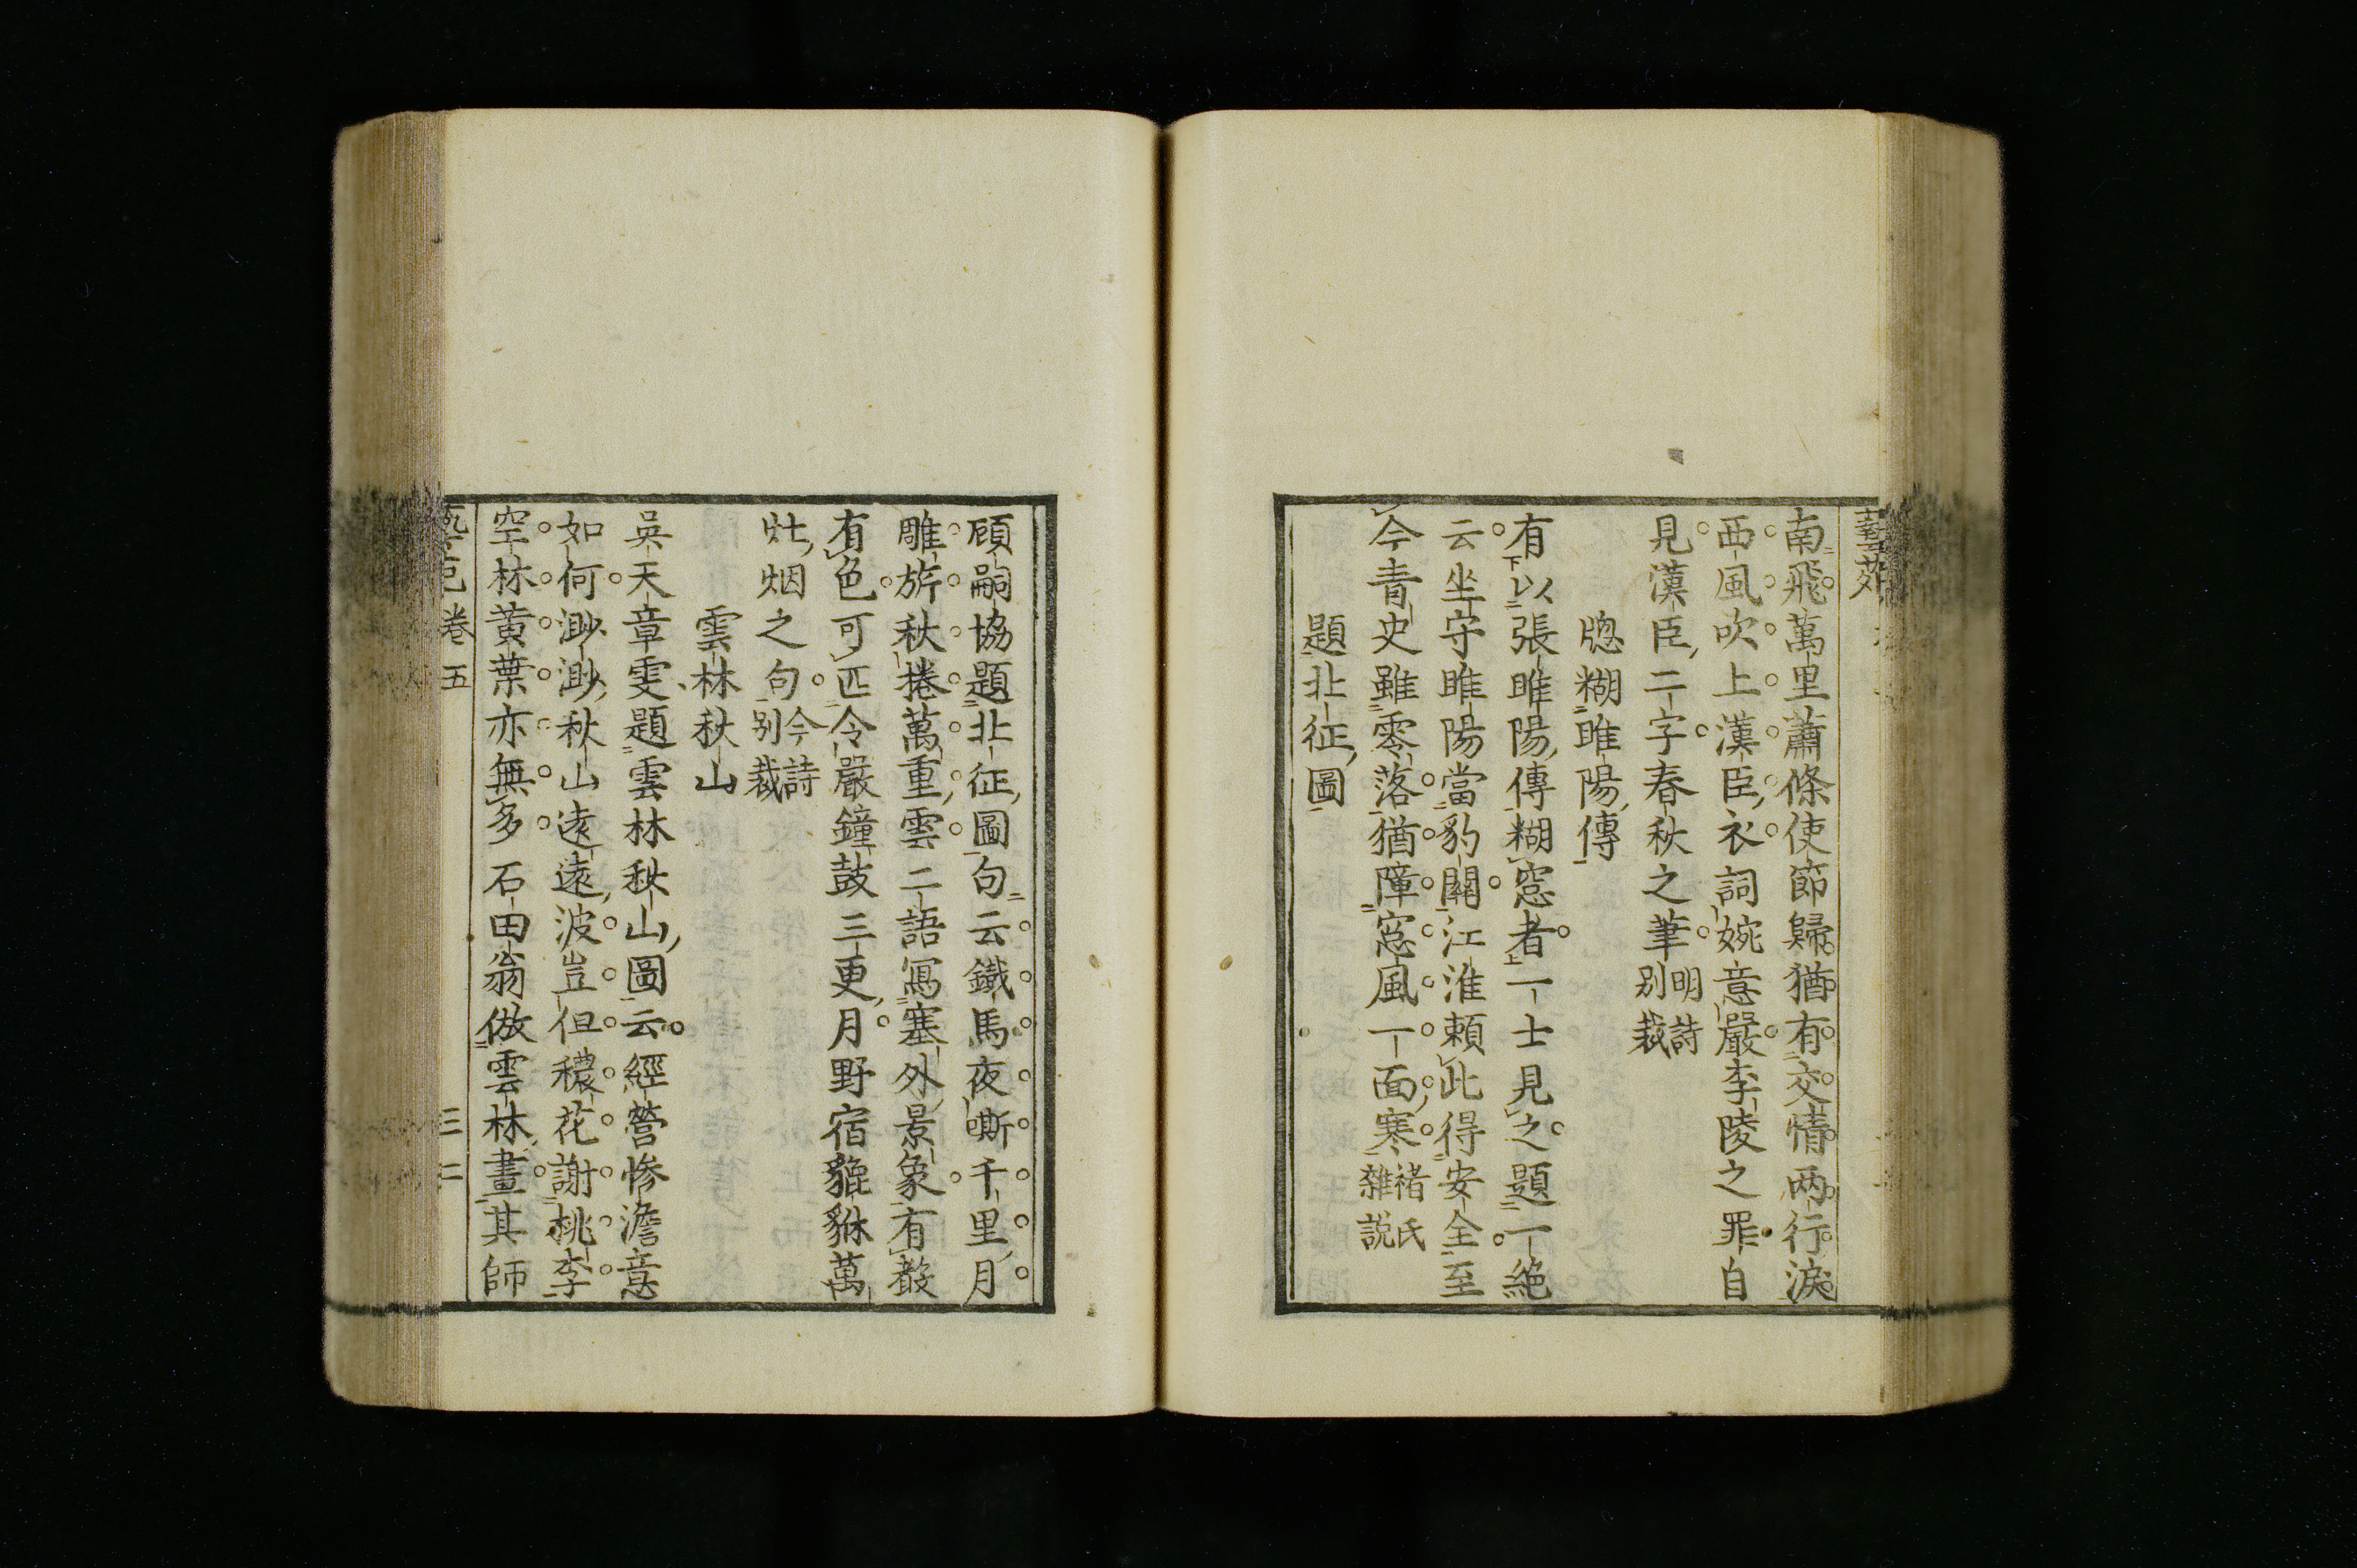 南飛萬里蕭條使節歸猶有交情两行淚
西風吹上漢臣衣詞婉意嚴李陵之罪自
見漢臣二字春秋之筆明詩别裁
牕糊睢陽傳
有以張睢陽傳糊窓者一士見之題一絶
云坐守睢陽當豹關江淮頼此得安全至
今青史雖零落猶障窓風一面寒褚氏雜説
題北征圖
顧嗣協題北征圖句云鐵馬夜嘶千里月
雕旂秋捲萬重雲二語寫塞外景象有聲
有色可匹令嚴鐘鼓三更月野宿貔貅萬
灶烟之句今詩别裁
雲林秋山
吳天章雯題雲林秋山圖云經營慘澹意
如何渺渺秋山遠遠波豈但穠花謝桃李
空林黄葉亦無多石田翁倣雲林畫其師
藝苑卷五 三二